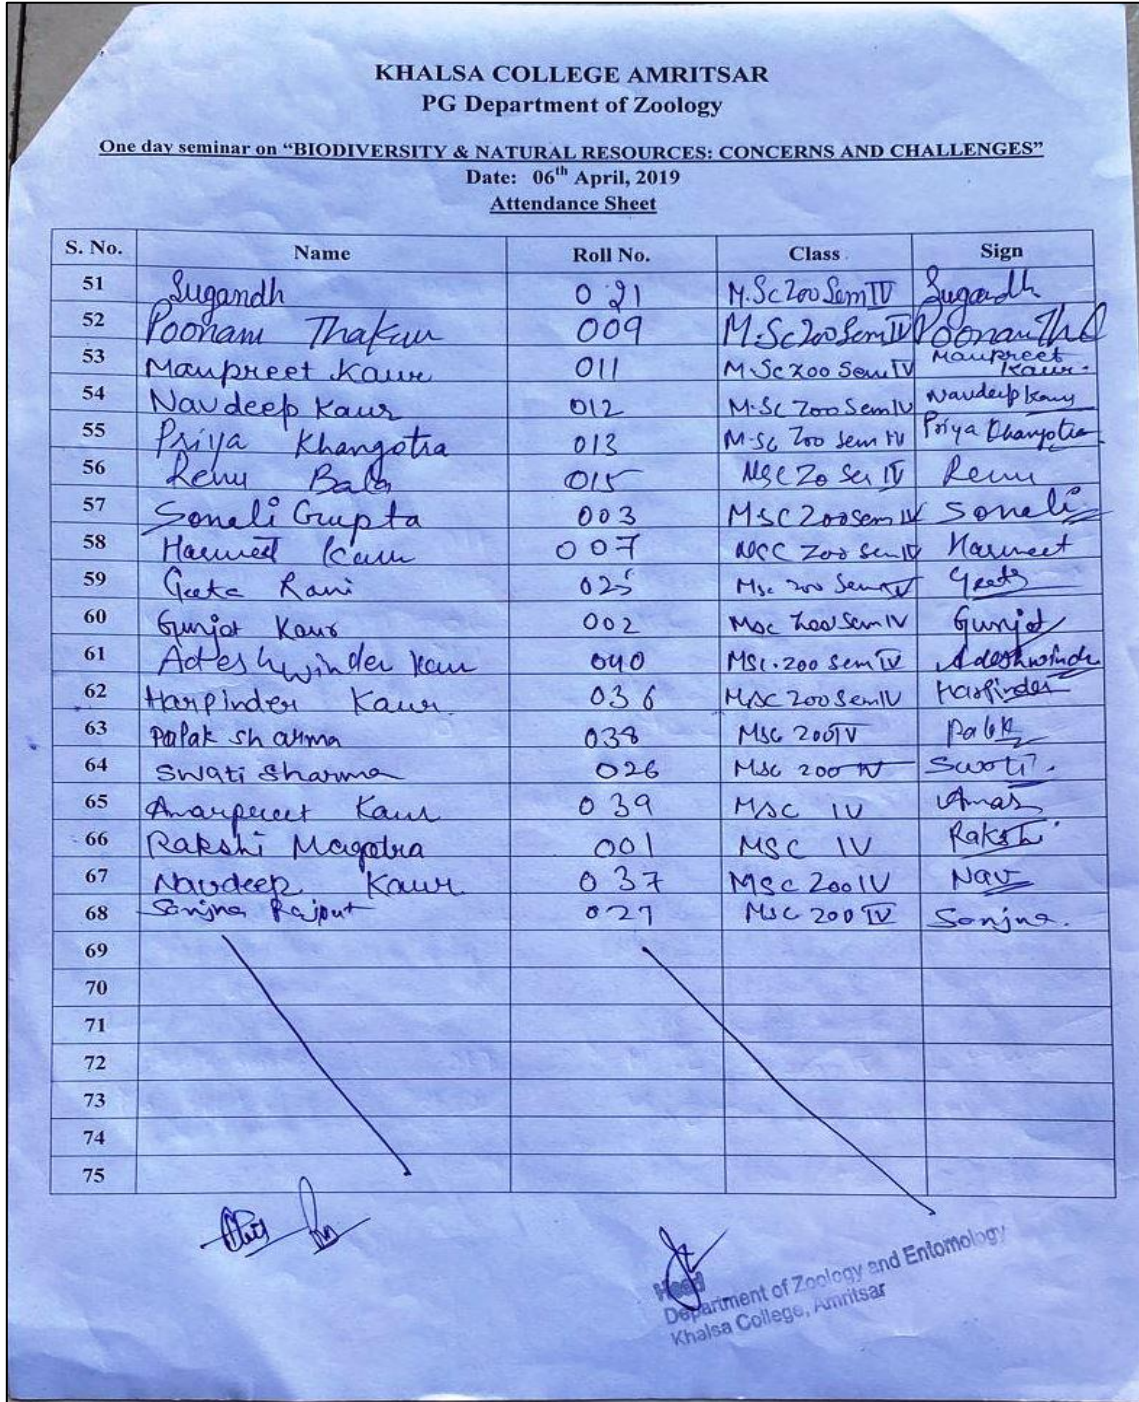 KHALSA COLLEGE AMRITSAR
PG Department of Zoology
One day seminar on “BIODIVERSITY & NATURAL RESOURCES: CONCERNS AND CHALLENGES”
Date: 06th April, 2019
Attendance Sheet
S. No. Name Roll No. Class Sign
51 Sugandh 021 M.Sc Zoo Sem IV Sugandh
52 Poonam Thakur 009 M.Sc Zoo Sem IV Poonam
53 Manpreet Kaur 011 M.Sc Zoo Sem IV Manpreet Kaur.
54 Navdeep Kaur 012 M.Sc Zoo Sem IV Navdeep Kaur
55 Priya Khangotra 013 M.Sc Zoo Sem IV Priya Khangotra
56 Renu Bala 015 MSC Zo Se IV Renu
57 Sonali Gupta 003 MSC Zoo Sem IV Sonali
58 Harmeet Kaur 007 MSC Zoo Sem IV Harmeet
59 Geeta Rani 025 Msc Zoo Sem IV Geeta
60 Gunjot Kaur 002 Msc Zoo Sem IV Gunjot
61 Adeshwinder Kaur 040 MSc. Zoo Sem IV Adeshwinder
62 Harpinder Kaur. 036 MSC Zoo Sem IV Harpinder
63 Palak sharma 038 MSc Zoo IV Palak
64 Swati Sharma 026 MSc Zoo IV Swati.
65 Amarpreet Kaur 039 MSC IV Amar
66 Rakshi Magotra 001 MSC IV Rakshi
67 Navdeep Kaur. 037 MSC Zoo IV Nav
68 Sanjna Rajput 027 MSC Zoo IV Sanjna.
69
70
71
72
73
74
75
Head
Department of Zoology and Entomology
Khalsa College, Amritsar